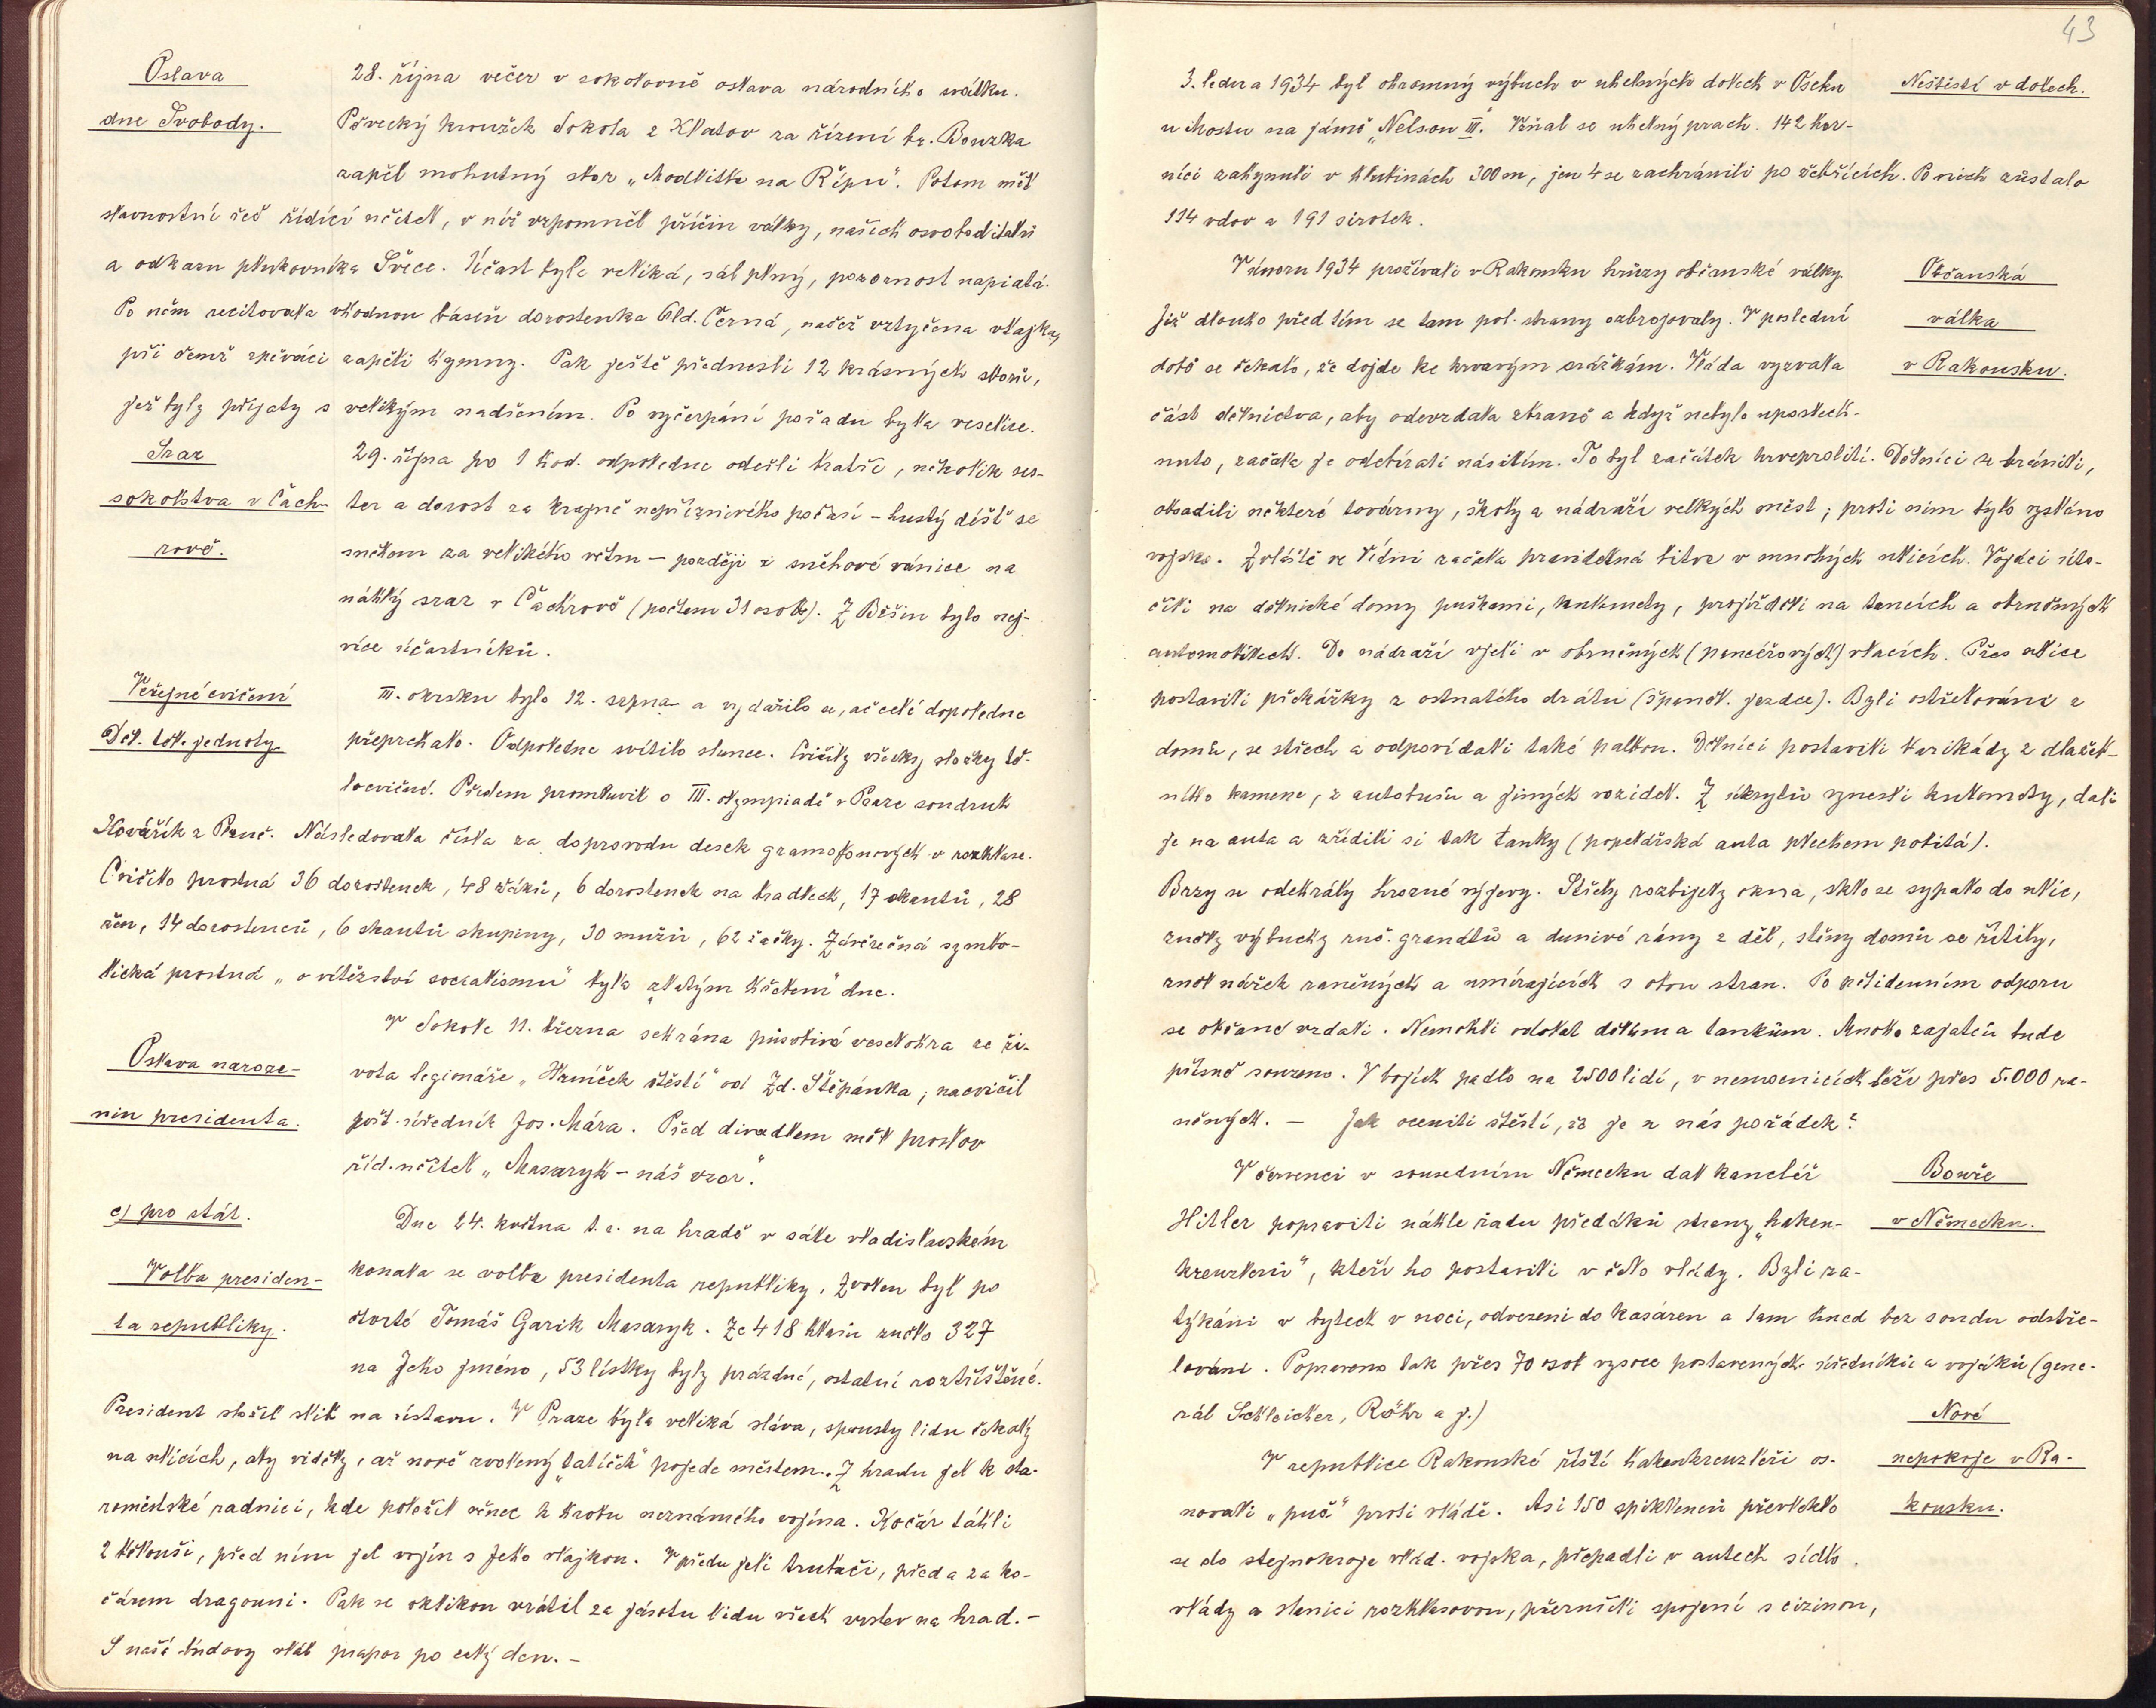 Oslava
dne Svobody.
28. října večer v sokolovně oslava národního svátku.
Pěvecký kroužek Sokola z Klatov za řízení br. Bouzka
zapěl mohutný sbor „Modlitba na Řípu". Potom měl
slavnostní řeč řídící učitel, v níž vzpomněl příčin války, našich osvoboditelů
a odkazu plukovníka Švece. Účast byla veliká, sál plný, pozornost napiatá.
Po něm recitovala vhodnou báseň dorostenka Old. Černá, načež vztyčena vlajka,
při čemž zpěváci zapěli hymny. Pak ještě přednesli 12 krásných sborů,
jež byly přijaty s velikým nadšením. Po vyčerpání pořadu byla veselice.
Sraz
sokolstva v Čach-
rově.
29. října po 1 hod. odpoledne odešli bratři, několik ses-
ter a dorost za krajně nepříznivého počasí – hustý déšť se
sněhem za velikého větru – později i sněhové vánice na
náhlý sraz v Čachrově (počtem 31 osob). Z Běšin bylo nej-
více účastníků.
Veřejné cvičení
Děl. těl. jednoty
III. okrsku bylo 12. srpna a vydařilo se, ač celé dopoledne
přeprchalo. Odpoledne svítilo slunce. Cvičily všecky složky tě-
locvičné. Předem promluvil o III. olympiadě v Praze soudruh
Kovářík z Plzně. Následovala čísla za doprovodu desek gramofonových v rozhlase.
Cvičilo prostná 36 dorostenek, 48 žáků, 6 dorostenek na bradlech, 17 skautů, 28
žen, 14 dorostenců, 6 skautů skupiny, 30 mužů, 62 žačky. Závěrečná symbo-
lická prostná „o vítězství socialismu" byla „zlatým hřebem" dne.
Oslava naroze-
nin presidenta.
V Sokole 11. března sehrána působivá veselohra ze ži-
vota legionáře „Hrníček štěstí" od Zd. Štěpánka; nacvičil
pošt. úředník Jos. Mára. Před divadlem měl proslov
říd. učitel „Masaryk – náš vzor."
c) pro stát.
Volba presiden-
ta republiky.
Dne 24. května t. r. na hradě v sále vladislavském
konala se volba presidenta republiky. Zvolen byl po
čtvrté Tomáš Garik Masaryk. Ze 418 hlasů znělo 327
na Jeho jméno, 53 lístky byly prázdné, ostatní roztříštěné.
President složil slib na ústavu. V Praze byla veliká sláva, spousty lidu čekaly
na ulicích, aby viděly, až nově zvolený „tatíček" pojede městem. Z hradu jel k sta-
roměstské radnici, kde položil věnec k hrobu neznámého vojína. Kočár táhli
2 bělouši, před ním jel vojín s Jeho vlajkou. V předu jeli trubači, před a za ko-
čárem dragouni. Pak se oklikou vrátil za jásotu lidu všech vrstev na hrad. –
S naší budovy vlál prapor po celý den. –
43
Neštěstí v dolech.
3. ledna 1934 byl ohromný výbuch v uhelných dolech v Oseku
u Mostu na jámě „Nelson III." Vzňal se uhelný prach. 142 hor-
níci zahynuli v hlubinách 300 m, jen 4 se zachránili po žebřících. Po nich zůstalo
114 vdov a 191 sirotek.
Občanská
válka
v Rakousku.
V únoru 1934 prožívali v Rakousku hrůzy občanské války.
Již dlouho před tím se tam pol. strany ozbrojovaly. V poslední
době se čekalo, že dojde ke krvavým srážkám. Vláda vyzvala
část dělnictva, aby odevzdala zbraně a když nebylo uposlech-
nuto, začala je odebírati násilím. To byl začátek krveprolití. Dělníci se bránili,
obsadili některé továrny, školy a nádraží velkých měst; proti nim bylo vysláno
vojsko. Zvláště ve Vídni začala pravidelná bitva v mnohých ulicích. Vojáci úto-
čili na dělnické domy puškami, kulomety, projížděli na tancích a obrněných
automobilech. Do nádraží vjeli v obrněných (pancéřových) vlacích. Přes ulice
postavili překážky z ostnatého drátu (španěl. jezdce). Byli ostřelováni z
domů, se střech a odpovídali také palbou. Dělníci postavili barikády z dlažeb-
ního kamene, z autobusů a jiných vozidel. Z úkrytů vynesli kulomety, dali
je na auta a zřídili si tak tanky (popelářská auta plechem pobitá).
Brzy se odehrály hrozné výjevy. Střely rozbíjely okna, sklo se sypalo do ulic,
zněly výbuchy ruč. granátů a dunivé rány z děl, stěny domů se řítily,
zněl nářek raněných a umírajících s obou stran. Po pětidenním odporu
se občané vzdali. Nemohli odolat dělům a tankům. Mnoho zajatců bude
přísně souzeno. V bojích padlo na 2500 lidí, v nemocnicích leží přes 5.000 ra-
něných. – Jak oceniti štěstí, že je u nás pořádek?
Bouře
v Německu.
V červenci v sousedním Německu dal kancléř
Hitler popraviti náhle řadu předáků strany „haken-
kreuzlerů", kteří ho postavili v čelo vlády. Byli za-
týkáni v bytech v noci, odvezeni do kasáren a tam hned bez soudu odstře-
lováni. Popraveno tak přes 70 osob vysoce postavených úředníků a vojáků (gene-
rál Schleicher, Röhr a j.)
Nové
nepokoje v Ra-
kousku.
V republice Rakouské říští hakenkreuzleři os-
novali „puč" proti vládě. Asi 150 spiklenců převleklo
se do stejnokroje vlád. vojska, přepadli v autech sídlo
vlády a stanici rozhlasovou, přerušili spojení s cizinou,